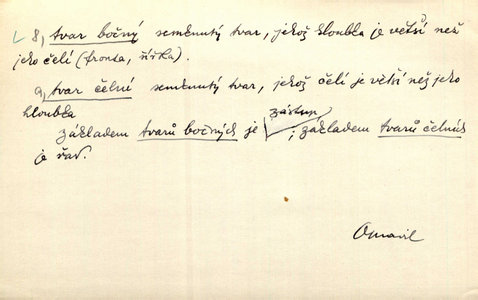 8, tvar bočný semknutý tvar, jehož hloubka je větší než
jeho čelí (fronta, šířka).
9, tvar čelní semknutý tvar, jehož čelí je větší než jeho
hloubka
zástup
základem tvarů bočných je ; základem tvarů čelních
je řad.